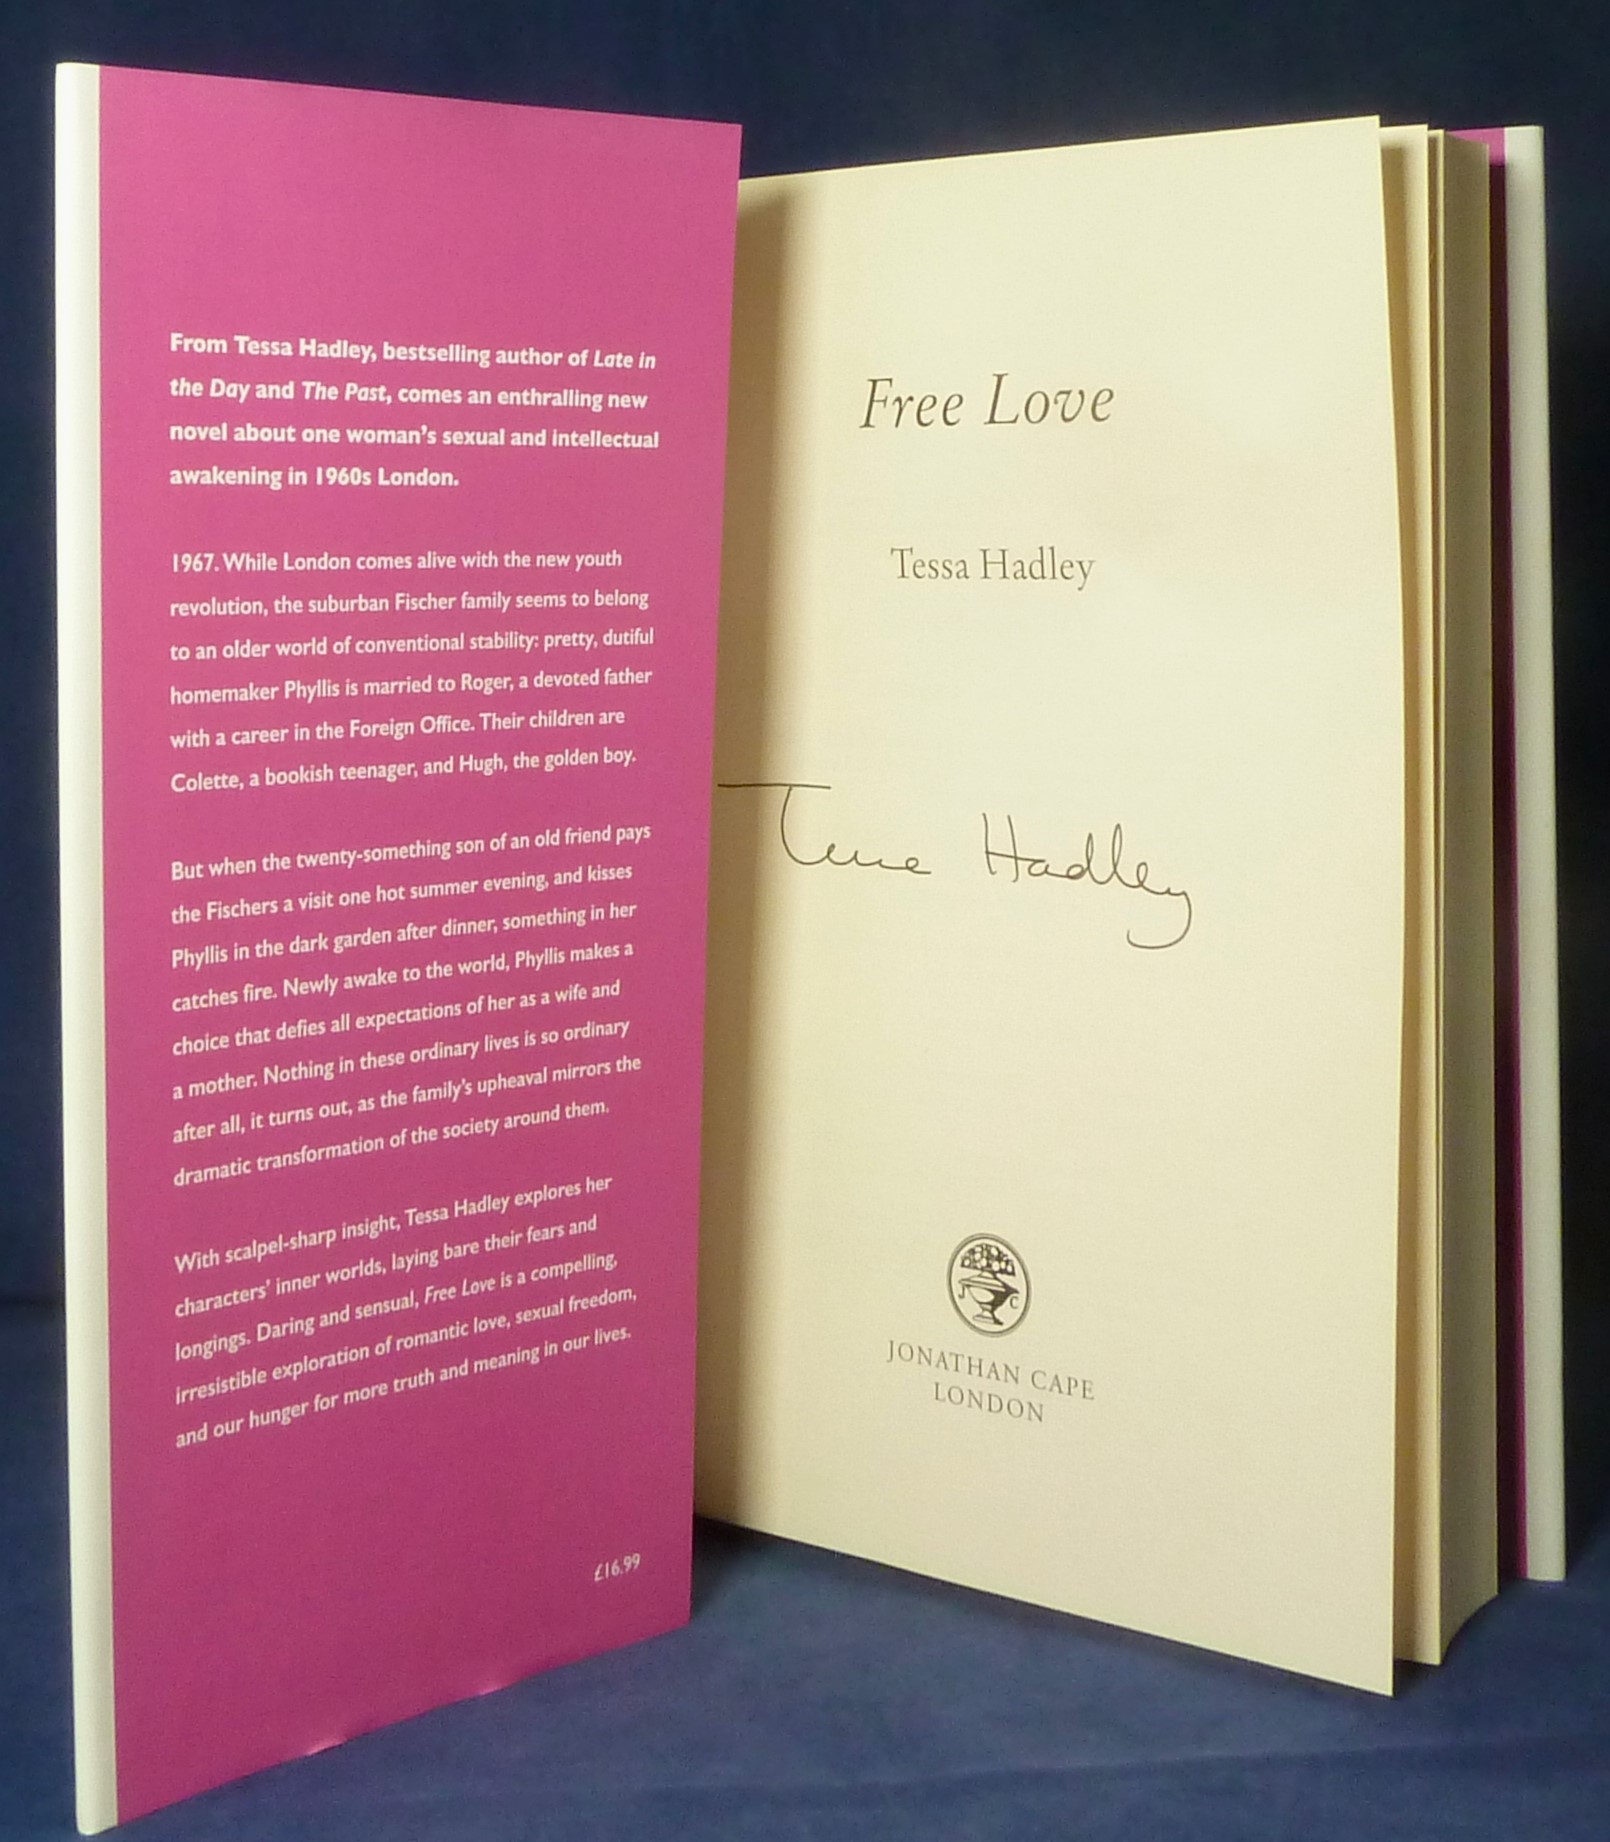 From Tessa Hadley, bestselling author of Late in
the Day and The Past, comes an enthralling new
novel about one woman's sexual and intellectual
awakening in 1960s London.
1967. While London comes alive with the new youth
revolution, the suburban Fischer family seems to belong
to an older world of conventional stability: pretty, dutiful
homemaker Phyllis is married to Roger, a devoted father
with a career in the Foreign Office. Their children are
Colette, a bookish teenager, and Hugh, the golden boy.
But when the twenty-something son of an old friend pays
the Fischers a visit one hot summer evening, and kisses
Phyllis in the dark garden after dinner, something in her
catches fire. Newly awake to the world, Phyllis makes a
choice that defies all expectations of her as a wife and
a mother. Nothing in these ordinary lives is so ordinary
after all, it turns out, as the family's upheaval mirrors the
dramatic transformation of the society around them.
With scalpel-sharp insight, Tessa Hadley explores her
characters' inner worlds, laying bare their fears and
longings. Daring and sensual, Free Love is a compelling,
irresistible exploration of romantic love, sexual freedom,
and our hunger for more truth and meaning in our lives.
£16.99
Free Love
Tessa Hadley
Tessa Hadley
J C
JONATHAN CAPE
LONDON